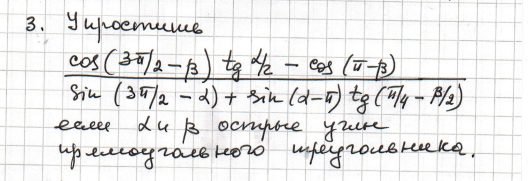 3. Упростить
cos(3π/2 - β) tg α/2 - cos(π-β)
sin(3π/2 - α) + sin(α-π) tg(π/4 - β/2)
если α и β острые углы
прямоугольного треугольника.